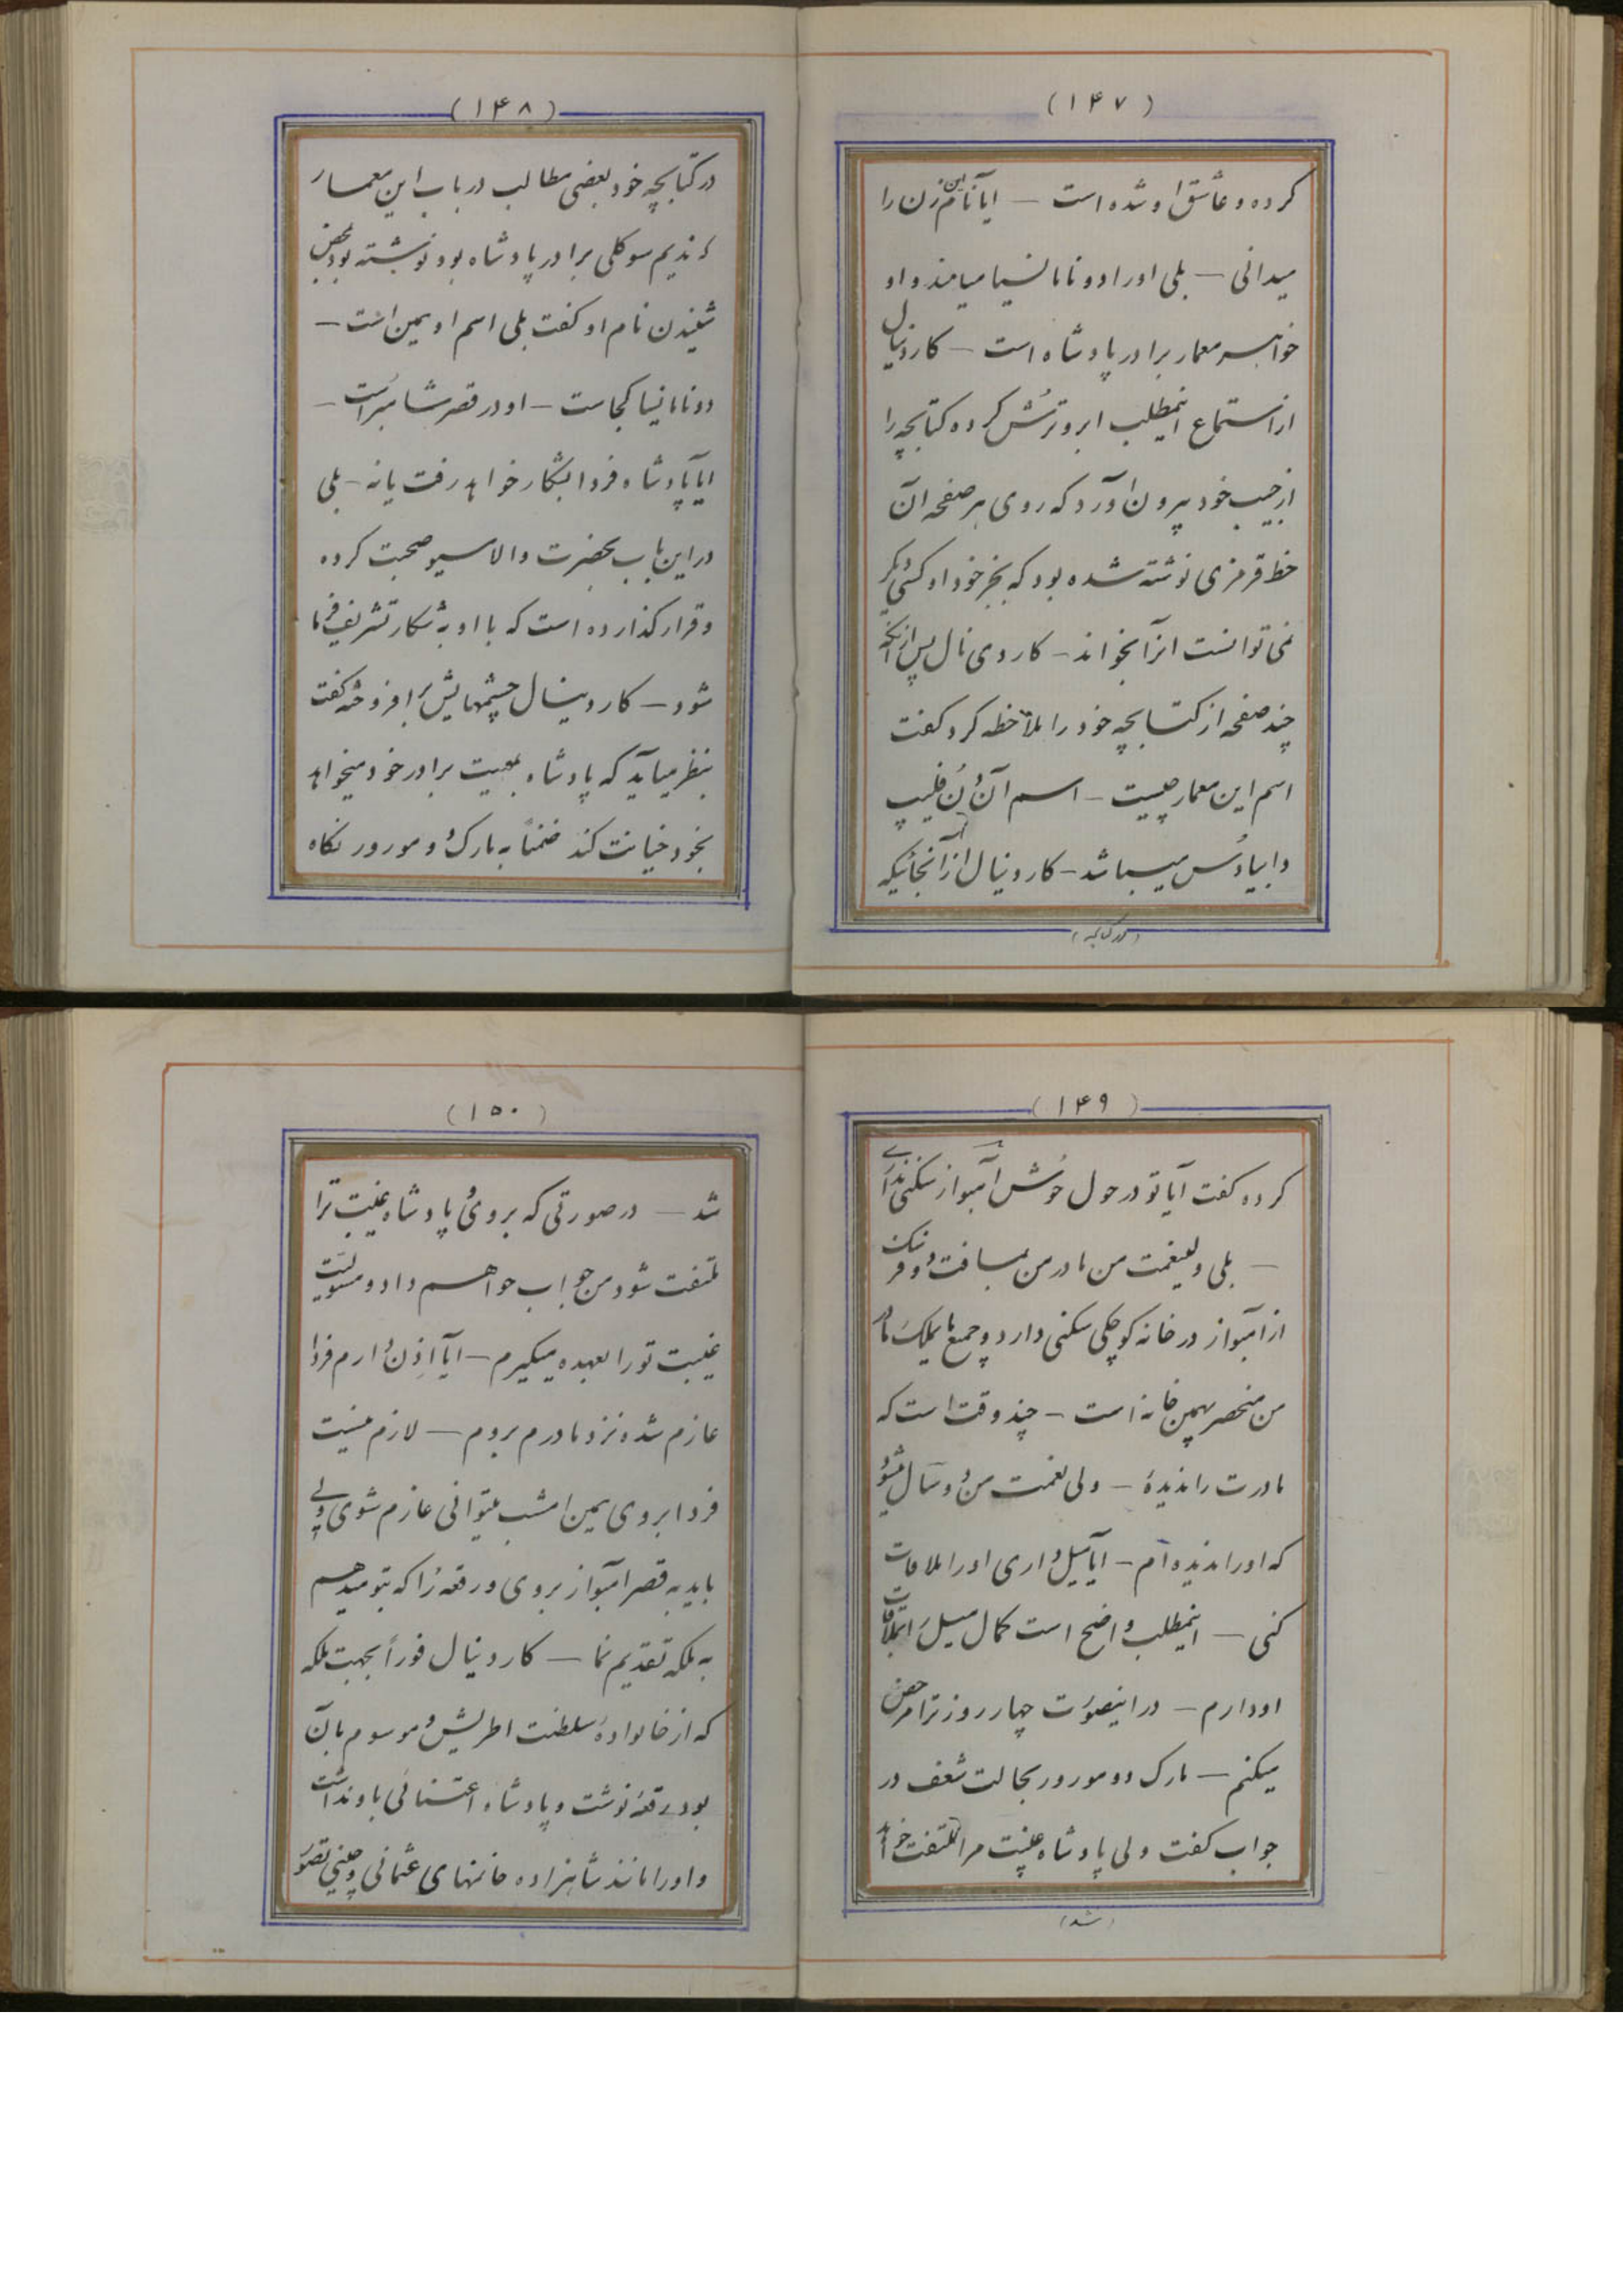 (۱۴۷)
کرده و عاشق او شده است – ایا نام این زن را
میدانی – بلی او را دونا مانسیا مینامند و او
خواهر معمار برادر پادشاه است – کاردینال
از استماع اینمطلب ابرو ترش کرده کتابچه را
از جیب خود بیرون آورد که روی هر صفحه آن
خط قرمزی نوشته شده بود که بجز خود او کسی دیگر
نمی توانست انرا بخواند – کاردی نال پس از آنکه
چند صفحه از کتابچه خود را ملاحظه کرد گفت
اسم این معمار چیست – اسم آن دُن فلیپ
دابیادُس میباشد – کاردینال از آنجائیکه
(در کتابچه)
(۱۴۸)
در کتابچه خود بعضی مطالب در باب این معمار
که ندیم سوکلی برادر پادشاه بود نوشته بود بمحض
شنیدن نام او گفت بلی اسم او همین است –
دونا مانسیا کجاست – او در قصر شامبراست –
ایا پادشاه فردا بشکار خواهد رفت یا نه – بلی
در این باب بحضرت والا مسیو صحبت کرده
و قرار گذارده است که با او به شکار تشریف فرما
شود – کاردینال چشمهایش برافروخته گفت
بنظر میآید که پادشاه بمعیت برادر خود میخواهد
بخود خیانت کند ضمناً به مارک دو مورور نگاه
(۱۴۹)
کرده گفت آیا تو در حول حُوش آمبواز سکنی نداری
– بلی ولیغمت من مادر من بمسافت دو فرسنک
از آمبواز در خانه کوچکی سکنی دارد و جمیع مایملک مادر
من منحصر بهمین خانه است – چند وقت است که
مادرت را ندیدهٔ – ولی نعمت من دو سال میشود
که او را ندیده‌ام – ایا میل داری او را ملاقات
کنی – اینمطلب واضح است کمال میل را بملاقات
او دارم – در اینصورت چهار روز ترا مرخص
میکنم – مارک دو مورور بحالت شعف در
جواب گفت ولی پادشاه غیبت مرا ملتفت خواهد
(شد)
(۱۵۰)
شد – در صورتی که بروی پادشاه غیبت ترا
ملتفت شود من جواب خواهم داد و مسولیت
غیبت تو را بعهده میگیرم – ایا اذن دارم فردا
عازم شده نزد مادرم بروم – لازم نیست
فردا بروی همین امشب میتوانی عازم شوی ولی
باید به قصر آمبواز بروی و رقعه را که بتو میدهم
به ملکه تقدیم نما – کاردینال فوراً بجهت ملکه
که از خانوادهٔ سلطنت اطریش و موسوم بآن
بود رقعه نوشت و پادشاه اعتنائی باو نداشت
و او را مانند شاهزاده خانمهای عثمانی و چینی تصور